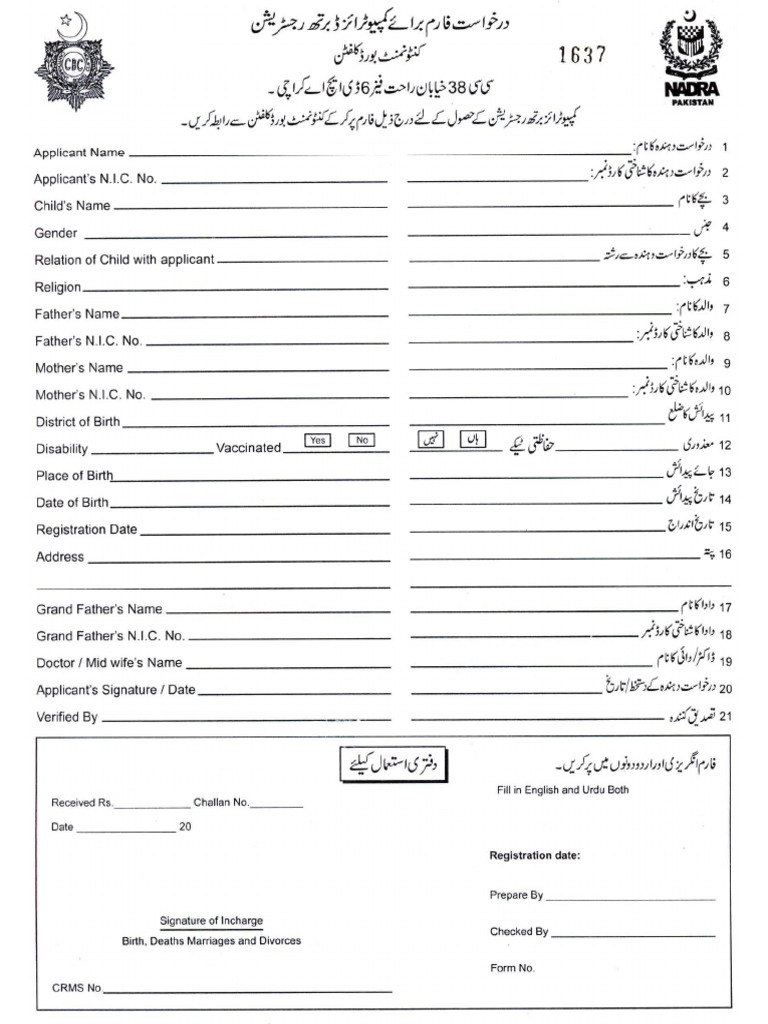 درخواست فارم برائے کمپیوٹرائزڈ برتھ رجسٹریشن
کنٹونمنٹ بورڈ کلفٹن
1637
CBC
NADRA
PAKISTAN
سی سی 38 خیابان راحت فیز 6 ڈی ایچ اے کراچی ۔
کمپیوٹرائز برتھ رجسٹریشن کے حصول کے لئے درج ذیل فارم پر کر کے کنٹونمنٹ بورڈ کلفٹن سے رابطہ کریں۔
Applicant Name درخواست دہندہ کا نام: 1
Applicant's N.I.C. No. درخواست دہندہ کا شناختی کارڈ نمبر: 2
Child's Name بچے کا نام 3
Gender جنس 4
Relation of Child with applicant بچے کا درخواست دہندہ سے رشتہ 5
Religion مذہب: 6
Father's Name والد کا نام: 7
Father's N.I.C. No. والد کا شناختی کارڈ نمبر: 8
Mother's Name والدہ کا نام: 9
Mother's N.I.C. No. والدہ کا شناختی کارڈ نمبر: 10
District of Birth پیدائش کا ضلع 11
Disability Vaccinated Yes No نہیں ہاں حفاظتی ٹیکے معذوری 12
Place of Birth جائے پیدائش 13
Date of Birth تاریخ پیدائش 14
Registration Date تاریخ اندراج 15
Address پتہ 16
Grand Father's Name دادا کا نام 17
Grand Father's N.I.C. No. دادا کا شناختی کارڈ نمبر 18
Doctor / Mid wife's Name ڈاکٹر/دائی کا نام 19
Applicant's Signature / Date درخواست دہندہ کے دستخط/تاریخ 20
Verified By تصدیق کنندہ 21
دفتری استعمال کیلئے
فارم انگریزی اور اردو دونوں میں پر کریں۔
Fill in English and Urdu Both
Received Rs. Challan No.
Date 20
Registration date:
Prepare By
Signature of Incharge
Birth, Deaths Marriages and Divorces
Checked By
Form No.
CRMS No